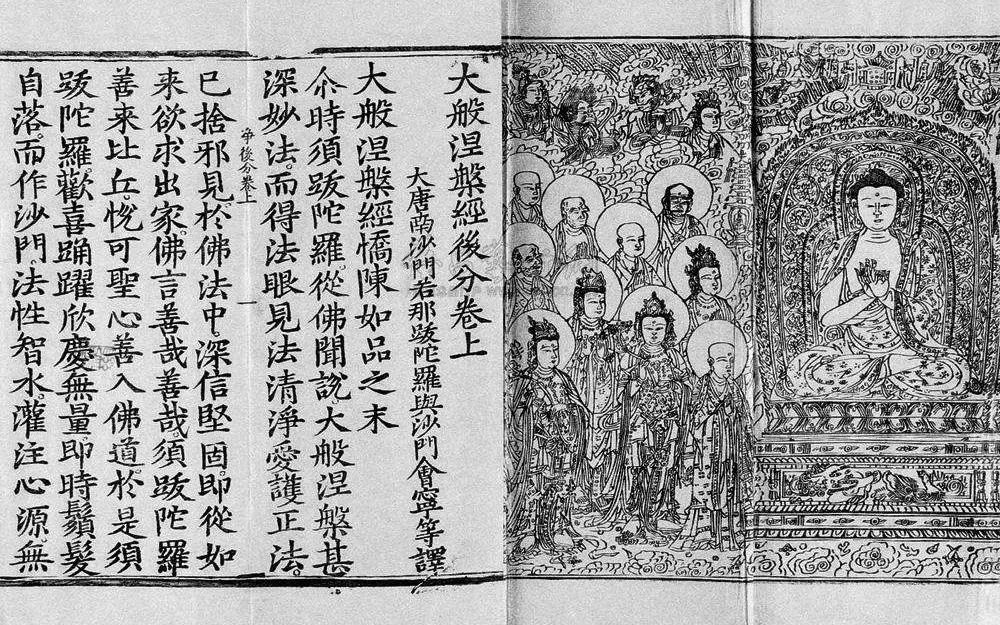 大般涅槃經後分卷上
大唐南沙門若那跋陀羅與沙門會寧等譯
大般涅槃經憍陳如品之末
尒時須跋陀羅。從佛聞說。大般涅槃甚
深妙法。而得法眼見法清淨愛護正法。
後分卷上 一
已捨邪見。於佛法中。深信堅固。即從如
来欲求出家。佛言善哉善哉須跋陀羅
善来比丘。恱可聖心善入佛道。於是須
跋陀羅。歡喜踊躍欣慶無量。即時鬚髮
自落。而作沙門。法性智水。灌注心源。無